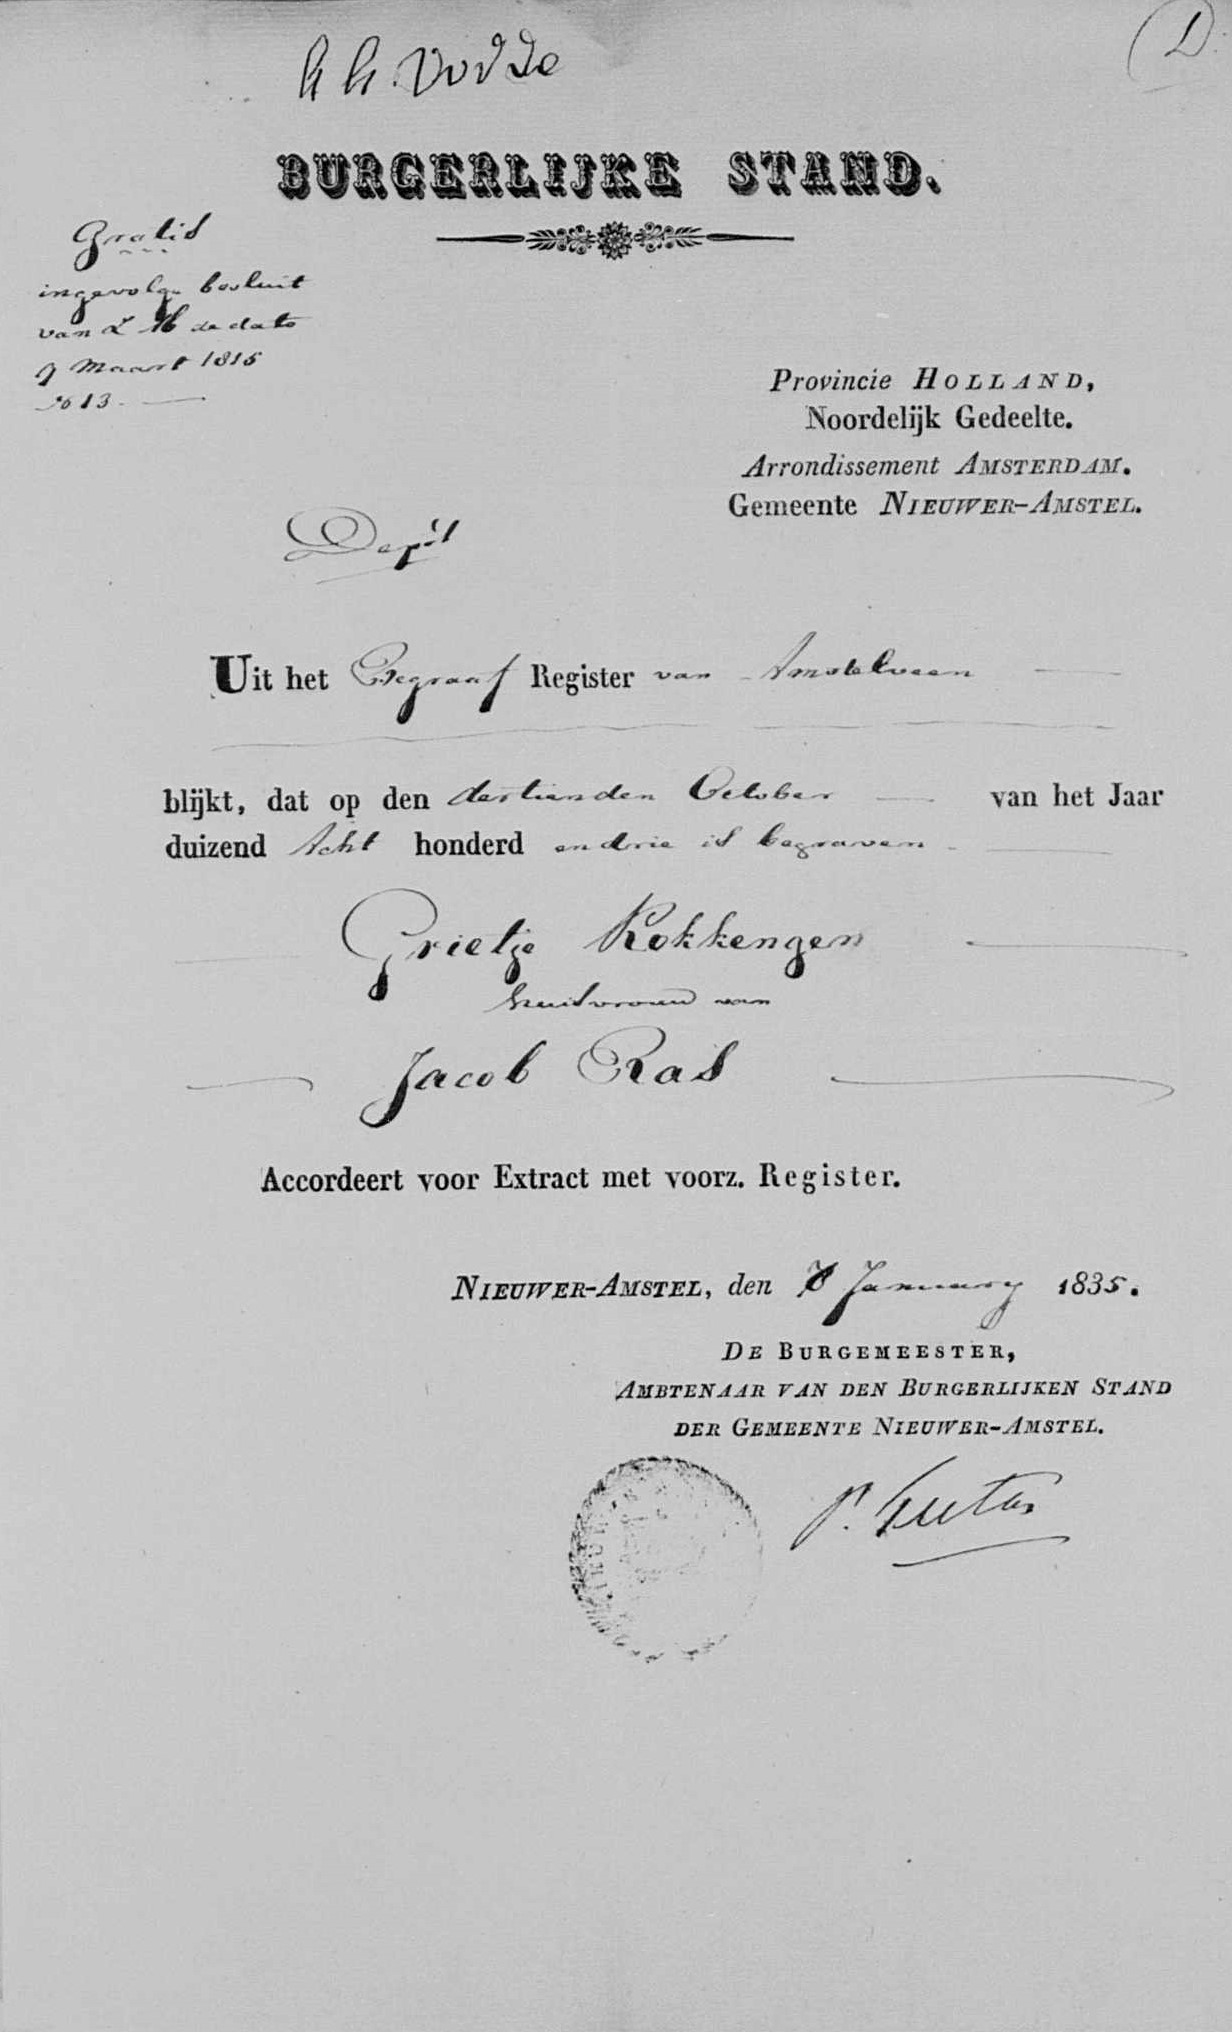 D.
BURGERLIJKE STAND.
Gratis
ingevolge besluit
van Z M de dato
9 Maart 1815
No 13.
Provincie HOLLAND,
Noordelijk Gedeelte.
Arrondissement AMSTERDAM.
Gemeente NIEUWER-AMSTEL.
Uit het Begraaf Register van Amstelveen
blijkt, dat op den dertienden October van het Jaar
duizend Acht honderd en drie is begraven
Grietje Kokkengen
huisvrouw van
Jacob Ras
Accordeert voor Extract met voorz. Register.
NIEUWER-AMSTEL, den January 1835.
DE BURGEMEESTER,
AMBTENAAR VAN DEN BURGERLIJKEN STAND
DER GEMEENTE NIEUWER-AMSTEL.